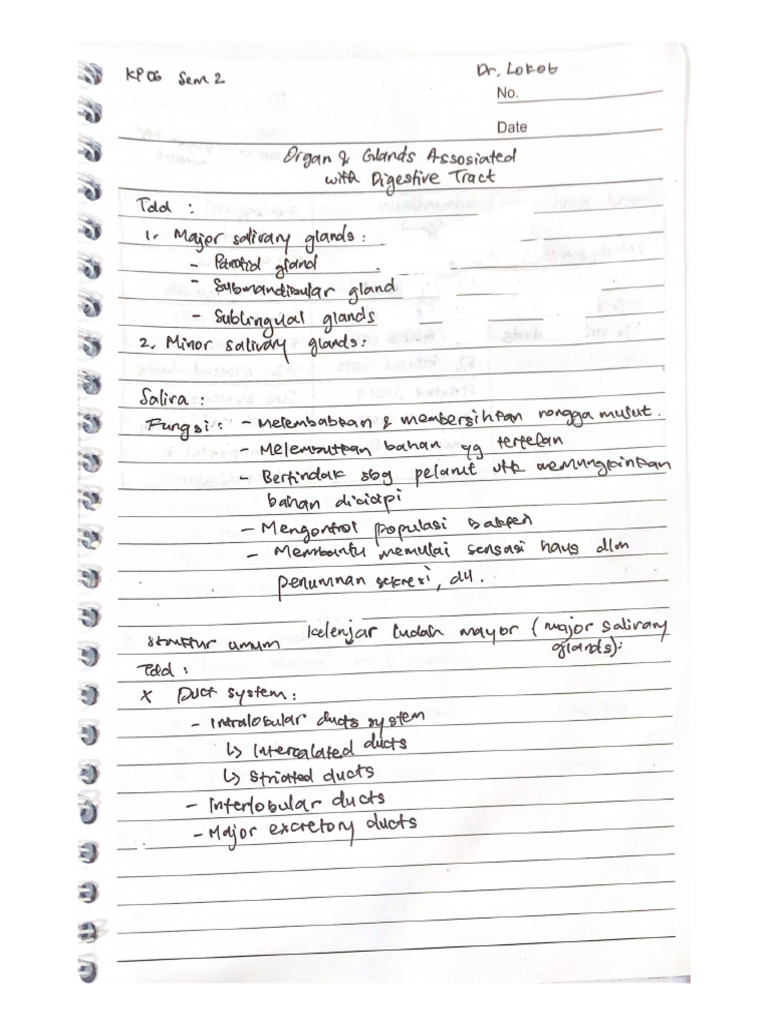 KP 06 Sem 2
Dr. Lokot
No.
Date
Organ & Glands Assosiated
with Digestive Tract
Tdd :
1. Major salivary glands :
- Parotid gland
- Submandibular gland
- Sublingual glands
2. Minor salivary glands :
Saliva :
Fungsi : - Melembabkan & membersihkan rongga mulut.
- Melembutkan bahan yg tertelan
- Bertindak sbg pelarut utk memungkinkan
bahan dicicipi
- Mengontrol populasi bakteri
- Membantu memulai sensasi haus dlm
penurunan sekresi, dll.
Struktur umum kelenjar ludah mayor (major salivary
glands) :
Tdd :
x Duct system :
- Intralobular ducts system
↳ Intercalated ducts
↳ Striated ducts
- Interlobular ducts
- Major excretory ducts